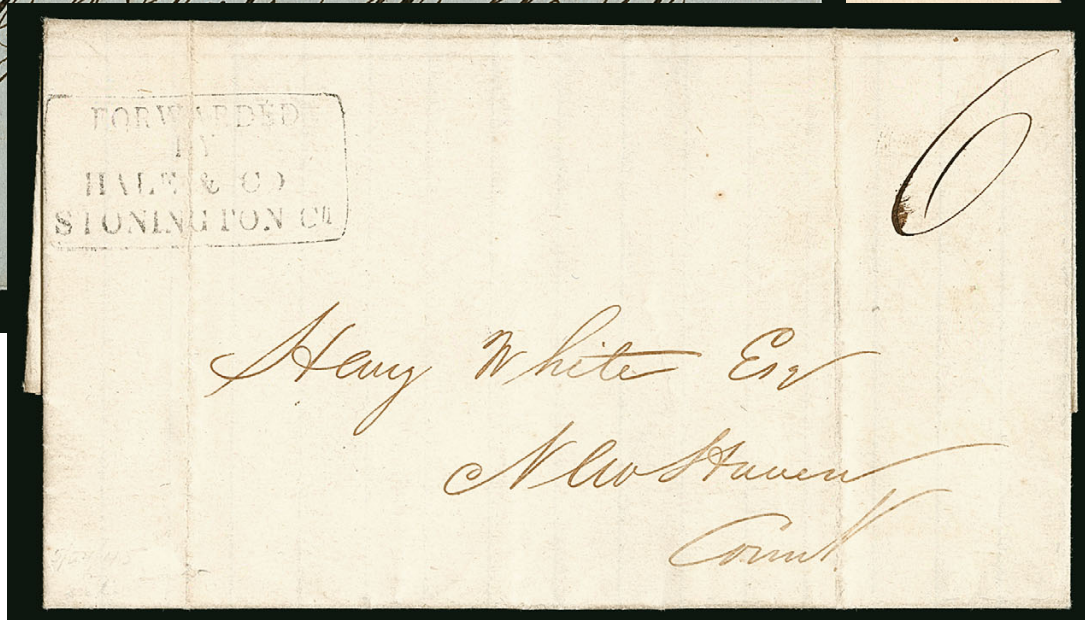 FORWARDED
BY
HALE & CO
STONINGTON Ct
6
Henry White Esq
New Haven
Connt.